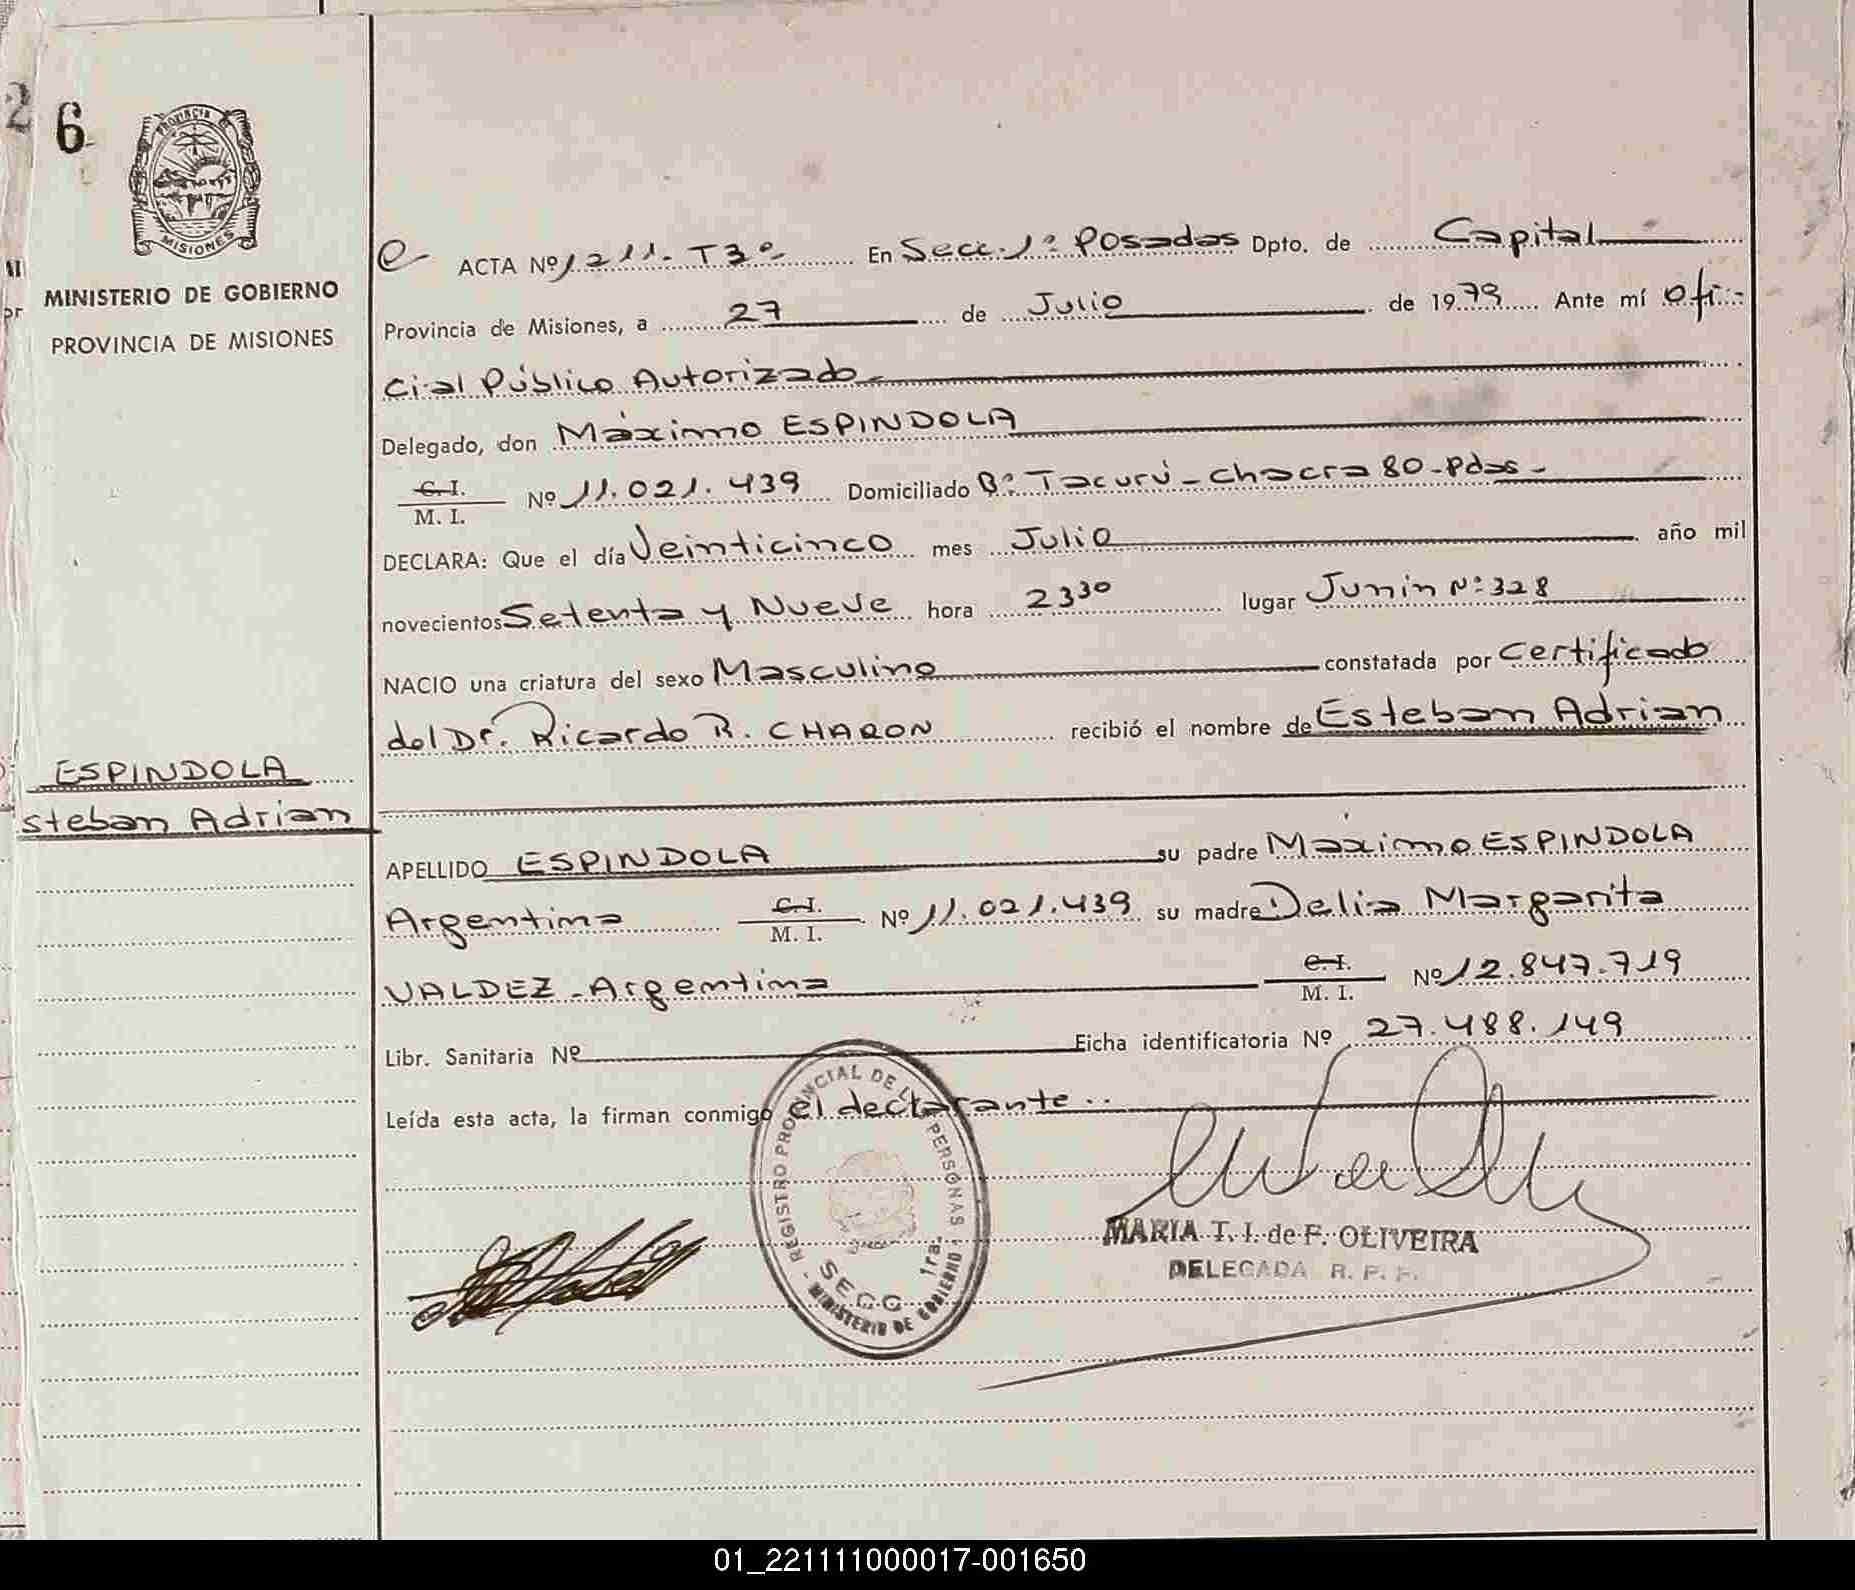 26
PROVINCIA DE
MISIONES
MINISTERIO DE GOBIERNO
PROVINCIA DE MISIONES
ESPINDOLA
steban Adrian
ACTA Nº 1211. T3º En Secc. 1º Posadas Dpto. de Capital
Provincia de Misiones, a 27 de Julio de 1979 Ante mí Ofi-
cial Público Autorizado
Delegado, don Máximo ESPINDOLA
C. I. / M. I. Nº 11.021.439 Domiciliado Bº Tacurú - Chacra 80 - Pdas -
DECLARA: Que el día Veinticinco mes Julio año mil
novecientos Setenta y Nueve hora 2330 lugar Junin Nº 328
NACIO una criatura del sexo Masculino constatada por Certificado
del Dr. Ricardo R. CHARON recibió el nombre de Esteban Adrian
APELLIDO ESPINDOLA su padre Máximo ESPINDOLA
Argentino C. I. / M. I. Nº 11.021.439 su madre Delia Margarita
VALDEZ - Argentina C. I. / M. I. Nº 12.847.719
Libr. Sanitaria Nº Ficha identificatoria Nº 27.488.149
Leída esta acta, la firman conmigo el declarante..
REGISTRO PROVINCIAL DE LAS PERSONAS - MINISTERIO DE GOBIERNO -
SECC. 1ra.
MARIA T. I. de F. OLIVEIRA
DELEGADA R. P. P.
01_221111000017-001650